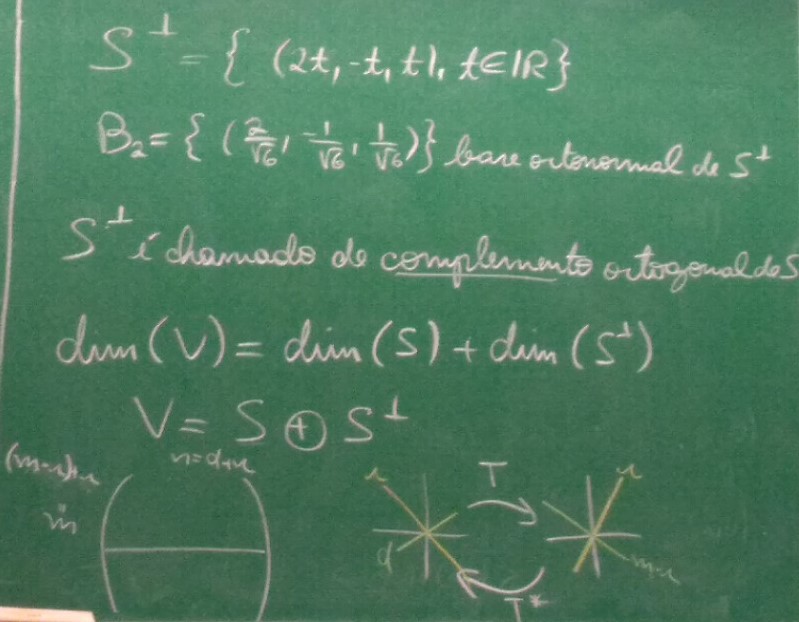 S⊥ = { (2t, -t, t), t∈IR}
B₂ = { (2/√6, -1/√6, 1/√6)} base ortonormal de S⊥
S⊥ é chamado de complemento ortogonal de S
dim (V) = dim (S) + dim (S⊥)
V = S ⊕ S⊥
n=d+r
(m-r)+r
m
T
r
r
d
m-r
T*